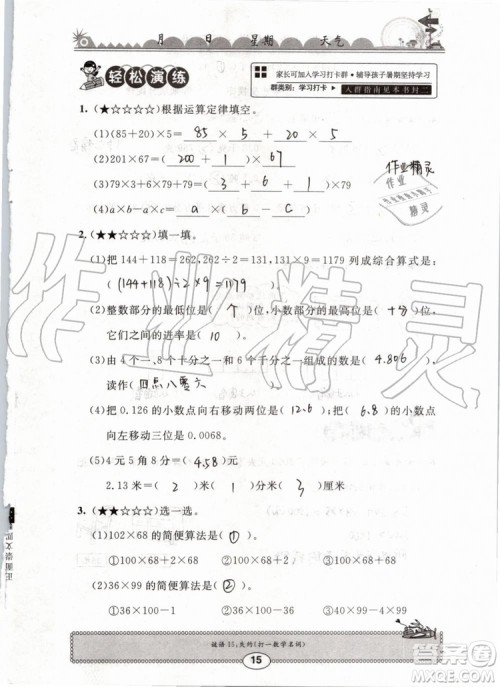 月 日 星期 天气
轻松演练
家长可加入学习打卡群·辅导孩子暑期坚持学习
群类别:学习打卡 入群指南见本书封二
1.(★☆☆☆☆)根据运算定律填空。
(1)(85+20)×5= 85 × 5 + 20 × 5
(2)201×67=( 200 + 1 )× 67
(3)79×3+6×79+79=( 3 + 6 + 1 )×79
(4)a×b-a×c= a ×( b - C )
作业精灵
作业
精灵
2.(★★☆☆☆)填一填。
(1)把144+118=262,262÷2=131,131×9=1179列成综合算式是:
( (144+118)÷2×9=1179 )。
(2)整数部分的最低位是( 个 )位,小数部分的最高位是( 十分 )位,
它们之间的进率是( 10 )。
(3)由4个一、8个十分之一和6个千分之一组成的数是( 4.806 ),
读作( 四点八零六 )
(4)把0.126的小数点向右移动两位是( 12.6 );把( 6.8 )的小数点
向左移动三位是0.0068。
(5)4元5角8分=( 4.58 )元
2.13米=( 2 )米( 1 )分米( 3 )厘米
3.(★☆☆☆☆)选一选。
(1)102×68的简便算法是( ① )。
①100×68+2×68 ②100×68+2 ③100×2×68
(2)36×99的简便算法是( ② )。
①36×100-1 ②36×100-36 ③36×100+36
作业精灵
谜语15:失约(打一数学名词)
15